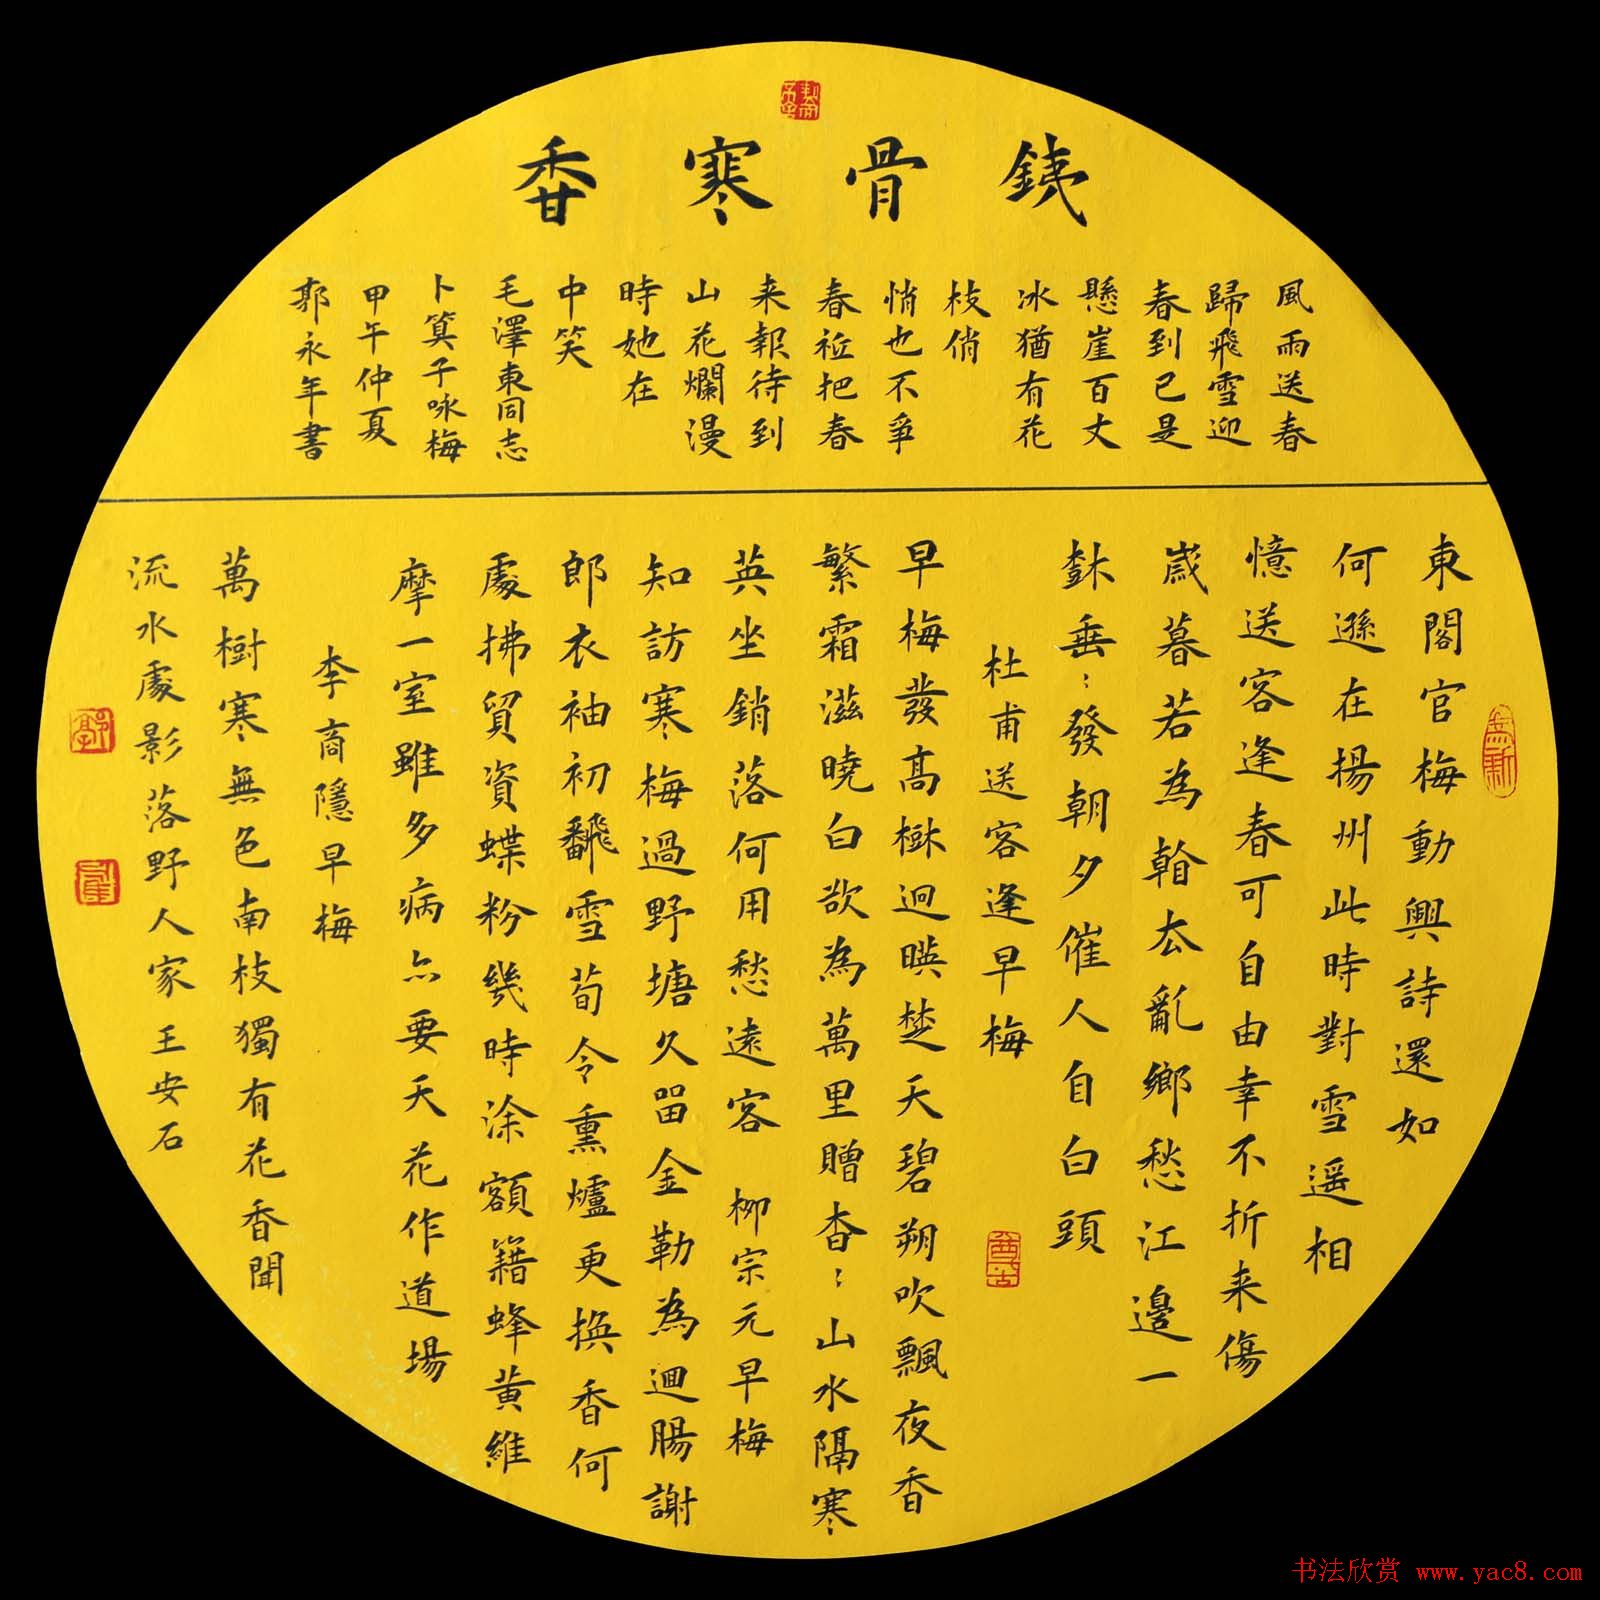 銕骨寒香
風雨送春
歸飛雪迎
春到已是
懸崖百丈
冰猶有花
枝俏
悄也不爭
春祗把春
来報待到
山花爛漫
時她在
中笑
毛澤東同志
卜算子咏梅
甲午仲夏
郭永年書
東閣官梅動興詩還如
何遜在揚州此時對雪遥相
憶送客逢春可自由幸不折来傷
歲暮若為看去亂鄉愁江邊一
𣗳垂：發朝夕催人自白頭
杜甫送客逢早梅
早梅發髙樹迥暎楚天碧朔吹飄夜香
繁霜滋曉白欲為萬里贈杳：山水隔寒
英坐銷落何用愁遠客 柳宗元早梅
知訪寒梅過野塘久留金勒為迴腸謝
郎衣袖初翻雪荀令熏爐更換香何
處拂胷資蝶粉幾時涂額籍蜂黄維
摩一室雖多病亦要天花作道場
李商隱早梅
萬樹寒無色南枝獨有花香聞
流水處影落野人家王安石
书法欣赏 www.yac8.com